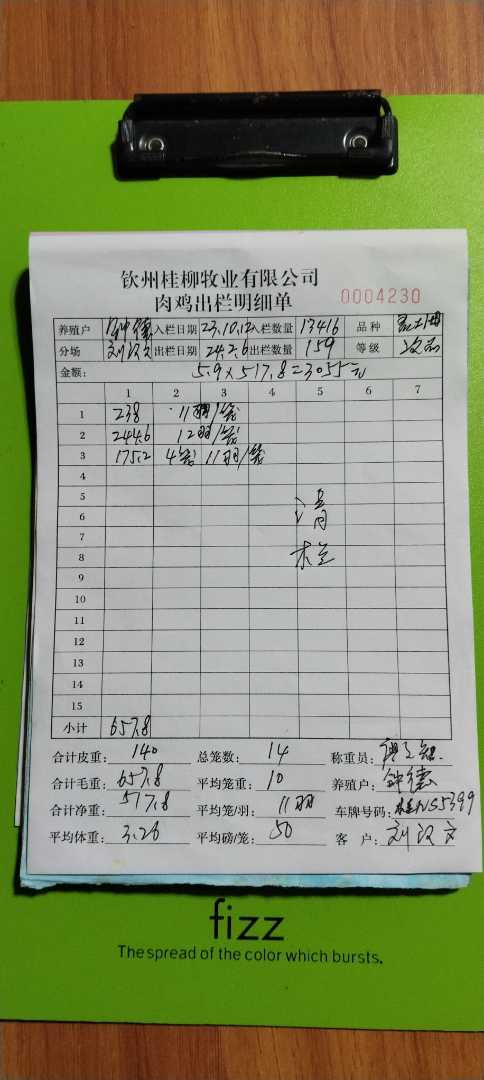 钦州桂柳牧业有限公司
肉鸡出栏明细单
0004230
养殖户 钟德 入栏日期 23.10.12 入栏数量 13416 品种
分场 刘汉文 出栏日期 24.2.6 出栏数量 159 等级 次品
金额: 5.9×517.8=3055元
1 2 3 4 5 6 7
1 238 11羽/笼
2 244.6 12羽/笼
3 175.2 4笼 11羽/笼
4
5
6 清
7
8 栏
9
10
11
12
13
14
15
小计 657.8
合计皮重: 140 总笼数: 14 称重员:
合计毛重: 657.8 平均笼重: 10 养殖户: 钟德
合计净重: 517.8 平均笼/羽: 11羽 车牌号码: NS5399
平均体重: 3.26 平均磅/笼: 50 客 户: 刘汉文
fizz
The spread of the color which bursts.